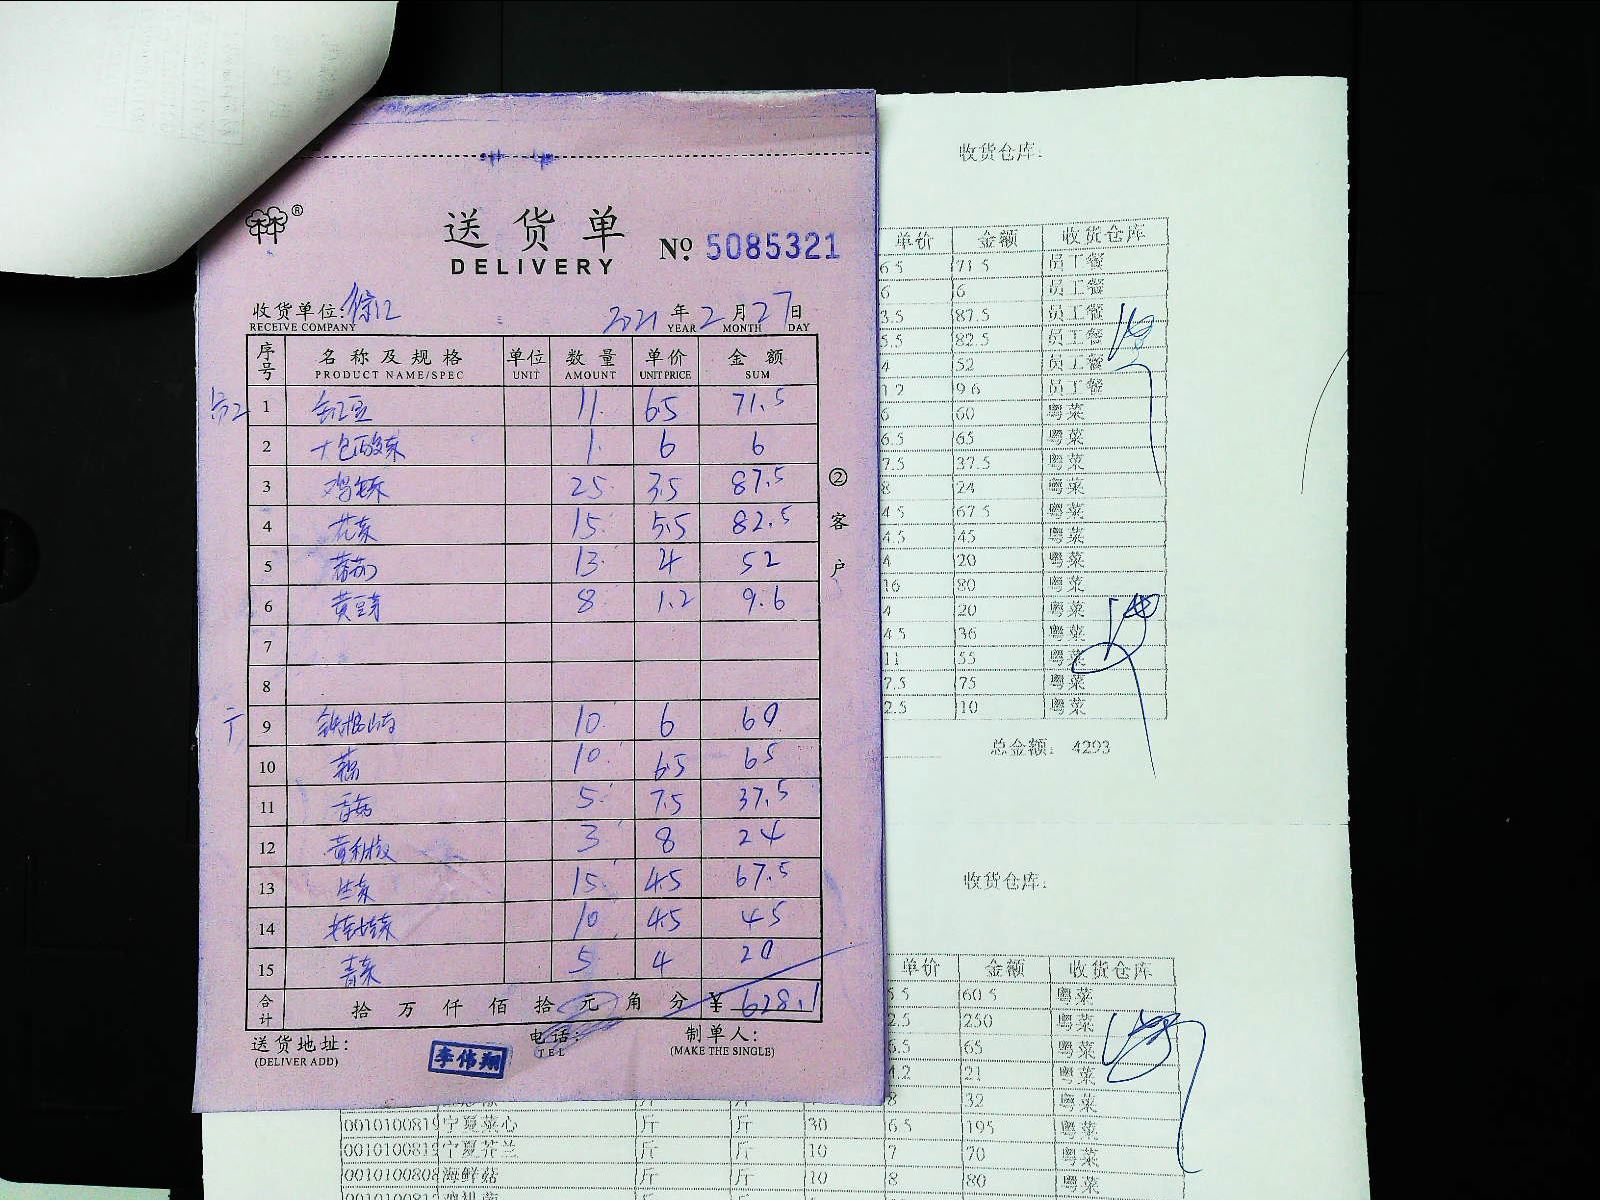 送货单
DELIVERY
№ 5085321
收货单位: 徐汇
RECEIVE COMPANY
2021 年 2 月 27 日
YEAR MONTH DAY
序号 名称及规格 单位 数量 单价 金额
PRODUCT NAME/SPEC UNIT AMOUNT UNIT PRICE SUM
1 豇豆 11 6.5 71.5
2 1 6 6
3 鸡毛菜 25 3.5 87.5
4 花菜 15 5.5 82.5
5 蕃茄 13 4 52
6 黄豆芽 8 1.2 9.6
7
8
9 铁棍山药 10 6 60
10 藕 10 6.5 65
11 香菇 5 7.5 37.5
12 黄彩椒 3 8 24
13 生菜 15 4.5 67.5
14 娃娃菜 10 4.5 45
15 青菜 5 4 20
合计 拾 万 仟 佰 拾 元 角 分 ¥ 628.1
送货地址: 电话: 制单人:
(DELIVER ADD) TEL (MAKE THE SINGLE)
李伟翔
② 客户
收货仓库:
单价 金额 收货仓库
6.5 71.5 员工餐
6 6 员工餐
3.5 87.5 员工餐
5.5 82.5 员工餐
4 52 员工餐
1.2 9.6 员工餐
6 60 粤菜
6.5 65 粤菜
7.5 37.5 粤菜
8 24 粤菜
4.5 67.5 粤菜
4.5 45 粤菜
4 20 粤菜
16 80 粤菜
4 20 粤菜
4.5 36 粤菜
11 55 粤菜
7.5 75 粤菜
2.5 10 粤菜
总金额: 4293
收货仓库:
单价 金额 收货仓库
5.5 60.5 粤菜
2.5 250 粤菜
6.5 65 粤菜
4.2 21 粤菜
8 32 粤菜
001010081 宁夏菜心 斤 斤 30 6.5 195 粤菜
001010081 宁夏芥兰 斤 斤 10 7 70 粤菜
001010080 海鲜菇 斤 斤 10 8 80 粤菜